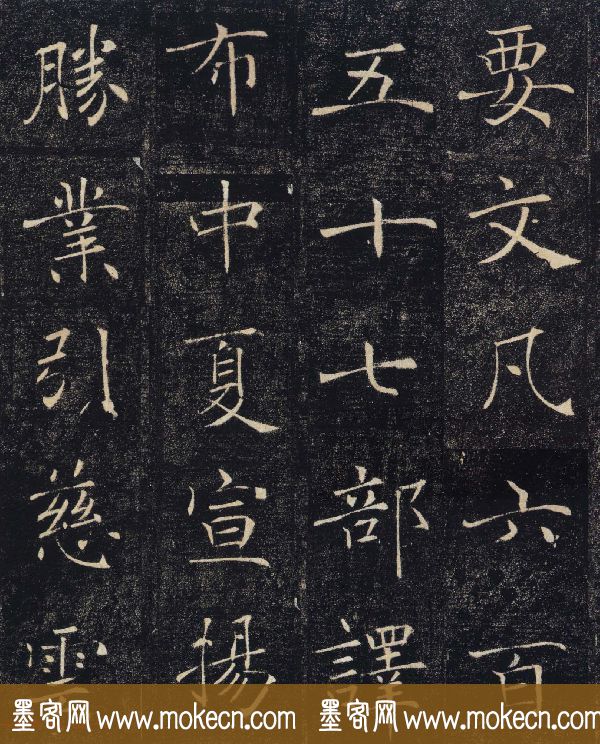 要文凡六百
五十七部譯
布中夏宣揚
勝業引慈雲
墨客网 www.mokecn.com 墨客网 www.mokecn.com